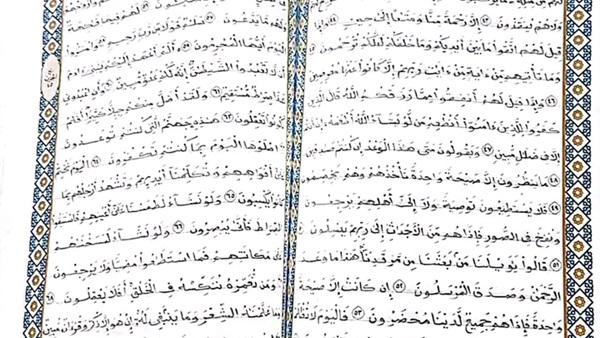 وَلَا هُمْ يُنقَذُونَ ٤٣ إِلَّا رَحْمَةً مِّنَّا وَمَتَٰعًا إِلَىٰ حِينٍ ٤٤ وَإِذَا
قِيلَ لَهُمُ ٱتَّقُوا۟ مَا بَيْنَ أَيْدِيكُمْ وَمَا خَلْفَكُمْ لَعَلَّكُمْ تُرْحَمُونَ
٤٥ وَمَا تَأْتِيهِم مِّنْ ءَايَةٍ مِّنْ ءَايَٰتِ رَبِّهِمْ إِلَّا كَانُوا۟ عَنْهَا مُعْرِضِينَ
٤٦ وَإِذَا قِيلَ لَهُمْ أَنفِقُوا۟ مِمَّا رَزَقَكُمُ ٱللَّهُ قَالَ ٱلَّذِينَ
كَفَرُوا۟ لِلَّذِينَ ءَامَنُوٓا۟ أَنُطْعِمُ مَن لَّوْ يَشَآءُ ٱللَّهُ أَطْعَمَهُۥٓ إِنْ أَنتُمْ
إِلَّا فِى ضَلَٰلٍ مُّبِينٍ ٤٧ وَيَقُولُونَ مَتَىٰ هَٰذَا ٱلْوَعْدُ إِن كُنتُمْ صَٰدِقِينَ
٤٨ مَا يَنظُرُونَ إِلَّا صَيْحَةً وَٰحِدَةً تَأْخُذُهُمْ وَهُمْ يَخِصِّمُونَ
٤٩ فَلَا يَسْتَطِيعُونَ تَوْصِيَةً وَلَآ إِلَىٰٓ أَهْلِهِمْ يَرْجِعُونَ
٥٠ وَنُفِخَ فِى ٱلصُّورِ فَإِذَا هُم مِّنَ ٱلْأَجْدَاثِ إِلَىٰ رَبِّهِمْ يَنسِلُونَ
٥١ قَالُوا۟ يَٰوَيْلَنَا مَنۢ بَعَثَنَا مِن مَّرْقَدِنَا هَٰذَا مَا وَعَدَ
ٱلرَّحْمَٰنُ وَصَدَقَ ٱلْمُرْسَلُونَ ٥٢ إِن كَانَتْ إِلَّا صَيْحَةً
وَٰحِدَةً فَإِذَا هُمْ جَمِيعٌ لَّدَيْنَا مُحْضَرُونَ ٥٣ فَٱلْيَوْمَ لَا تُظْلَمُ
وَلَهُم مَّا يَدَّعُونَ ٥٧ سَلَٰمٌ قَوْلًا مِّن رَّبٍّ رَّحِيمٍ ٥٨ وَٱمْتَٰزُوا۟
ٱلْيَوْمَ أَيُّهَا ٱلْمُجْرِمُونَ ٥٩ أَلَمْ أَعْهَدْ إِلَيْكُمْ يَٰبَنِىٓ ءَادَمَ
أَن لَّا تَعْبُدُوا۟ ٱلشَّيْطَٰنَ إِنَّهُۥ لَكُمْ عَدُوٌّ مُّبِينٌ ٦٠ وَأَنِ ٱعْبُدُونِى
هَٰذَا صِرَٰطٌ مُّسْتَقِيمٌ ٦١ وَلَقَدْ أَضَلَّ مِنكُمْ جِبِلًّا كَثِيرًا أَفَلَمْ
تَكُونُوا۟ تَعْقِلُونَ ٦٢ هَٰذِهِۦ جَهَنَّمُ ٱلَّتِى كُنتُمْ تُوعَدُونَ
٦٣ ٱصْلَوْهَا ٱلْيَوْمَ بِمَا كُنتُمْ تَكْفُرُونَ ٦٤ ٱلْيَوْمَ نَخْتِمُ
عَلَىٰٓ أَفْوَٰهِهِمْ وَتُكَلِّمُنَآ أَيْدِيهِمْ وَتَشْهَدُ أَرْجُلُهُم بِمَا
كَانُوا۟ يَكْسِبُونَ ٦٥ وَلَوْ نَشَآءُ لَطَمَسْنَا عَلَىٰٓ أَعْيُنِهِمْ فَٱسْتَبَقُوا۟
ٱلصِّرَٰطَ فَأَنَّىٰ يُبْصِرُونَ ٦٦ وَلَوْ نَشَآءُ لَمَسَخْنَٰهُمْ
عَلَىٰ مَكَانَتِهِمْ فَمَا ٱسْتَطَٰعُوا۟ مُضِيًّا وَلَا يَرْجِعُونَ
٦٧ وَمَن نُّعَمِّرْهُ نُنَكِّسْهُ فِى ٱلْخَلْقِ أَفَلَا يَعْقِلُونَ ٦٨
وَمَا عَلَّمْنَٰهُ ٱلشِّعْرَ وَمَا يَنۢبَغِى لَهُۥٓ إِنْ هُوَ إِلَّا ذِكْرٌ وَقُرْءَانٌ مُّبِينٌ